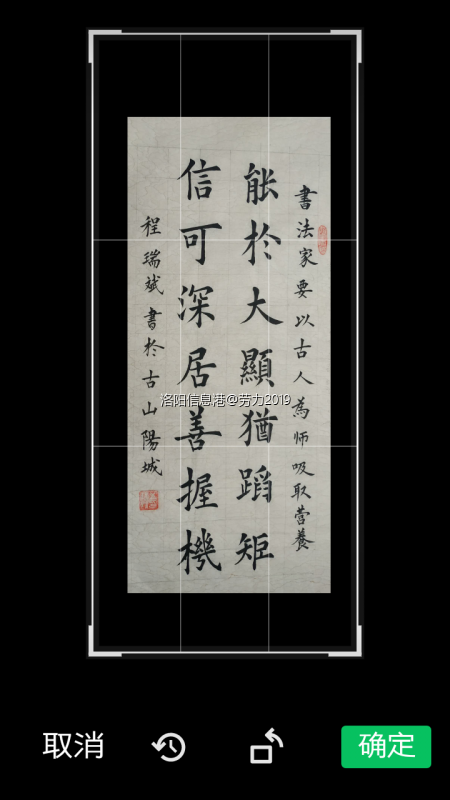 書法家要以古人為师吸取营養
能於大顯猶蹈矩
信可深居善握機
程瑞斌書於古山陽城
洛阳信息港@劳力2019
取消
确定